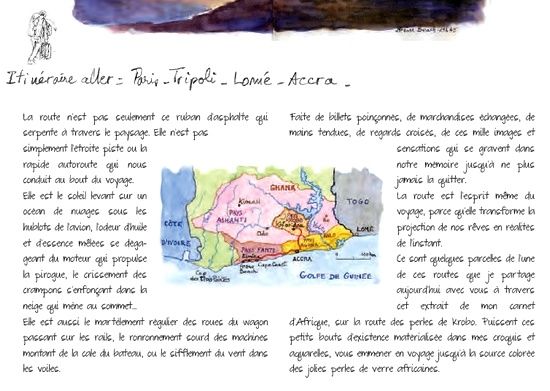 Itinéraire aller = Paris - Tripoli - Lomé - Accra -
La route n'est pas seulement ce ruban d'asphalte qui
serpente à travers le paysage. Elle n'est pas
simplement l'étroite piste ou la
rapide autoroute qui nous
conduit au bout du voyage.
Elle est le soleil levant sur un
océan de nuages sous les
hublots de l'avion, l'odeur d'huile
et d'essence mêlées se déga-
geant du moteur qui propulse
la pirogue, le crissement des
crampons s'enfonçant dans la
neige qui mène au sommet...
Elle est aussi le martèlement régulier des roues du wagon
passant sur les rails, le ronronnement sourd des machines
montant de la cale du bateau, ou le sifflement du vent dans
les voiles.
Faite de billets poinçonnés, de marchandises échangées, de
mains tendues, de regards croisés, de ces mille images et
sensations qui se gravent dans
notre mémoire jusqu'à ne plus
jamais la quitter.
La route est l'esprit même du
voyage, parce qu'elle transforme la
projection de nos rêves en réalités
de l'instant.
Ce sont quelques parcelles de l'une
de ces routes que je partage
aujourd'hui avec vous à travers
cet extrait de mon carnet
d'Afrique, sur la route des perles de Krobo. Puissent ces
petits bouts d'existence matérialisée dans mes croquis et
aquarelles, vous emmener en voyage jusqu'à la source colorée
des jolies perles de verre africaines.
GHANA
TOGO
CÔTE
D'IVOIRE
Kumasi
PAYS
ASHANTI
PAYS FANTE
LOMÉ
ACCRA
Cape Coast
GOLFE DE GUINÉE